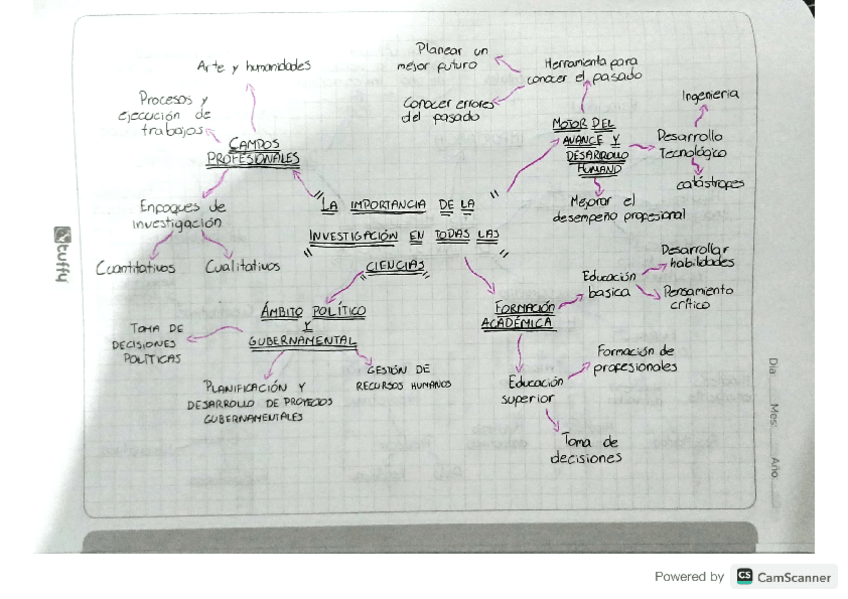 Arte y humanidades
Procesos y
ejecución de
trabajos
CAMPOS
PROFESIONALES
Enfoques de
investigación
Cuantitativos
Cualitativos
Planear un
mejor futuro
Conocer errores
del pasado
Herramienta para
conocer el pasado
MOTOR DEL
AVANCE Y
DESARROLLO
HUMANO
Ingenieria
Desarrollo
Tecnológico
catástropes
Mejorar el
desempeño profesional
"LA IMPORTANCIA DE LA "
INVESTIGACIÓN EN TODAS LAS
"CIENCIAS"
ÁMBITO POLÍTICO
Y
GUBERNAMENTAL
TOMA DE
DECISIONES
POLÍTICAS
PLANIFICACIÓN Y
DESARROLLO DE PROYECTOS
GUBERNAMENTALES
GESTIÓN DE
RECURSOS HUMANOS
FORMACIÓN
ACADÉMICA
Educación
basica
Desarrollar
habilidades
Pensamiento
crítico
Educación
superior
Formación de
profesionales
Toma de
decisiones
tuffy
Día Mes: Año
Powered by CS CamScanner